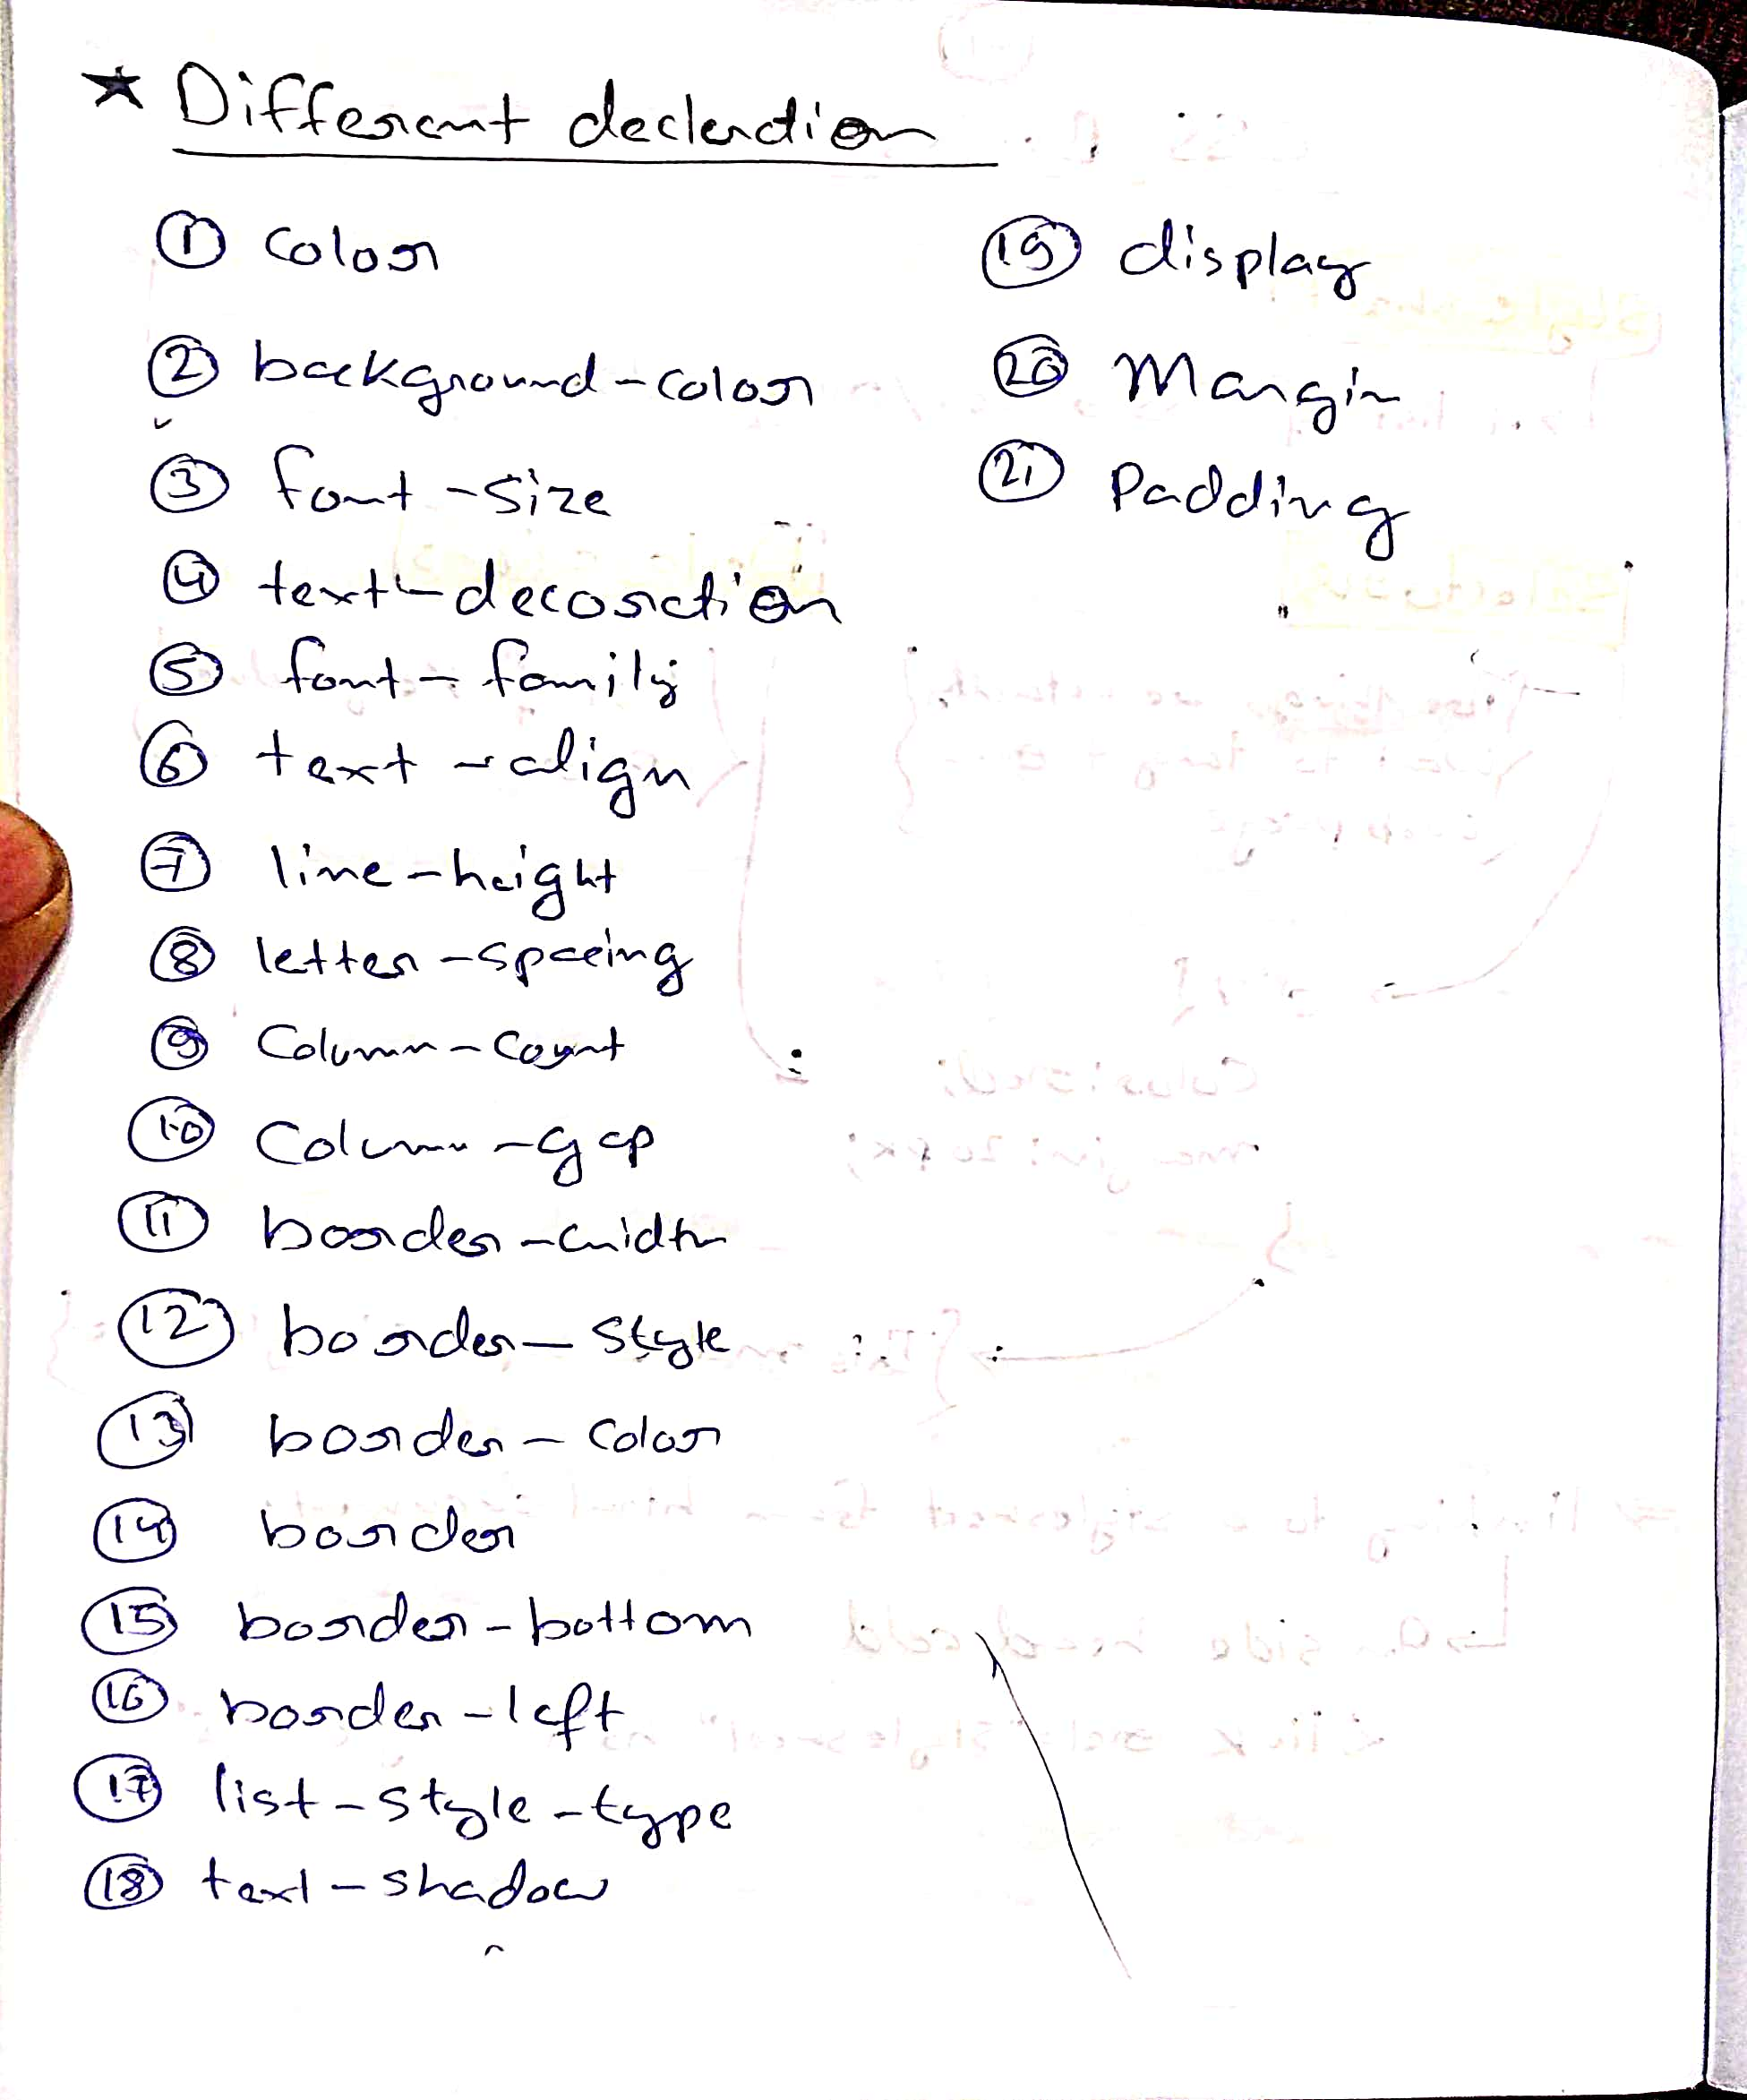 ★ Different declaration
① color
② background-color
③ font-size
④ text-decoration
⑤ font-family
⑥ text-align
⑦ line-height
⑧ letter-spacing
⑨ Column-count
⑩ Column-gap
⑪ border-width
⑫ border-style
⑬ border-color
⑭ border
⑮ border-bottom
⑯ border-left
⑰ list-style-type
⑱ text-shadow
⑲ display
⑳ Margin
㉑ Padding